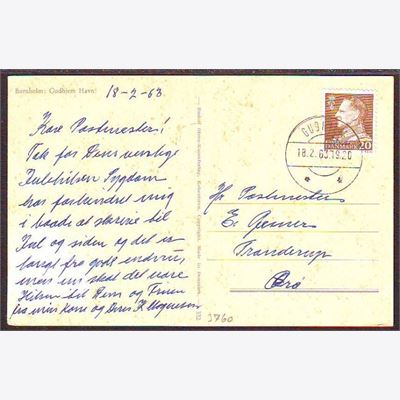 Bornholm: Gudhjem Havn:
18-2-63
Kære Postmester!
Tak for Deres venlige
Julehilsen Sygdom
har forhindret mig
i baade at skrive til
Jul og siden og det er
langt fra gode endnu,
men nu skal det være
Hilsen til Dem og Fruen
fra min Kone og Deres K. Mogensen
18.2.63.19.20
20
Hr. Postmester
E. Rømer
Tranderup
Ærø
3760